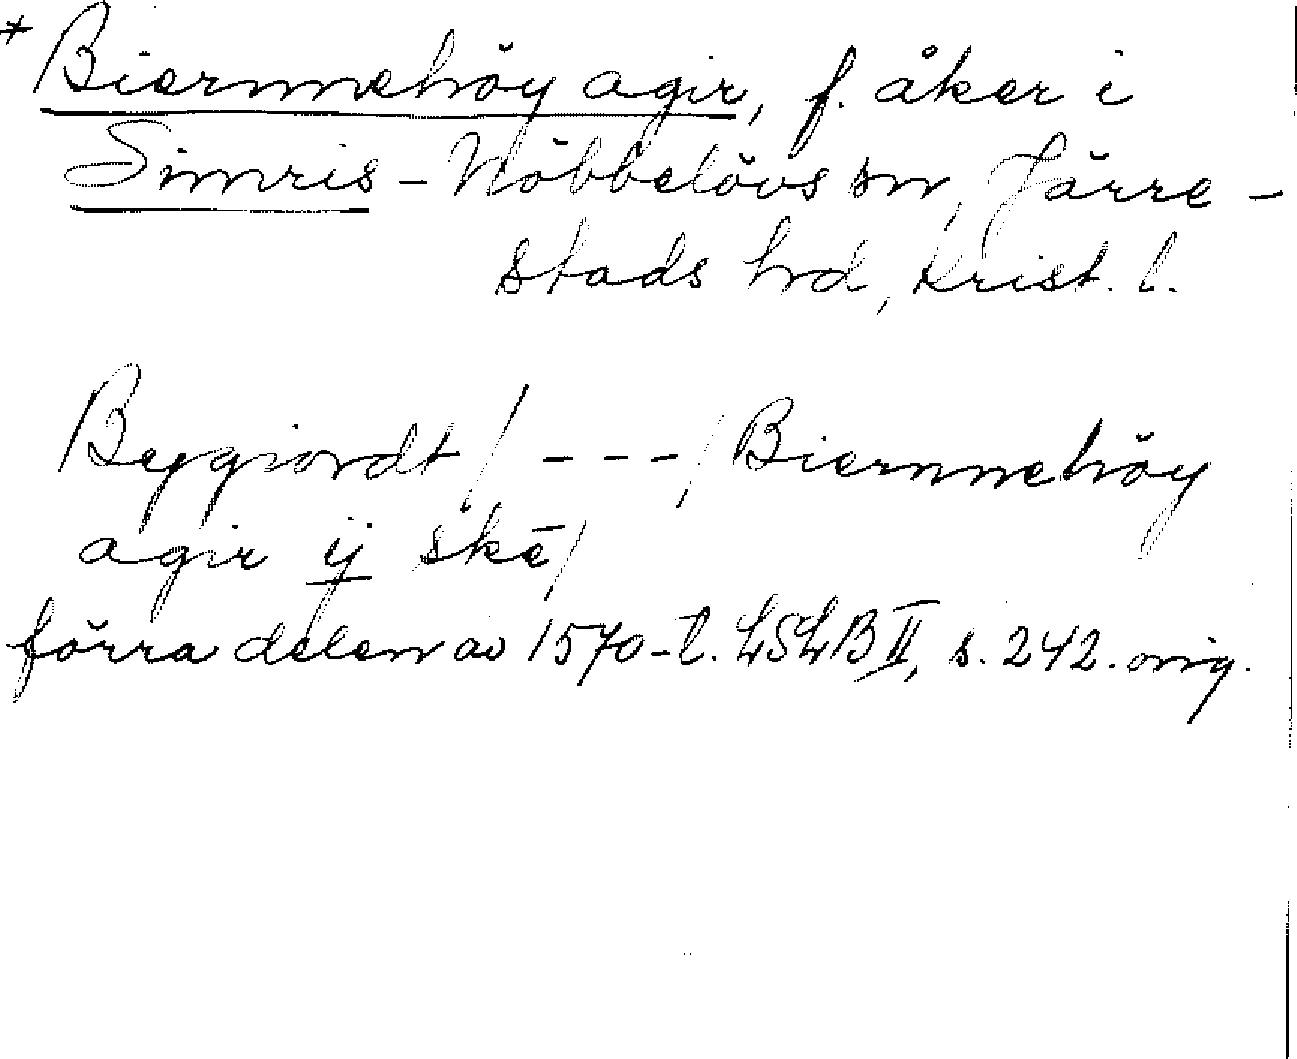 * Biernnehöy agir, f. åker i
Simris-Nöbbelövs sn, Järre-
stads hd, Krist. l.
Byggiordt / - - - / Biernnehöy
agir ij skē /
förra delen av 1570-t. LSLB II, s. 242. orig.